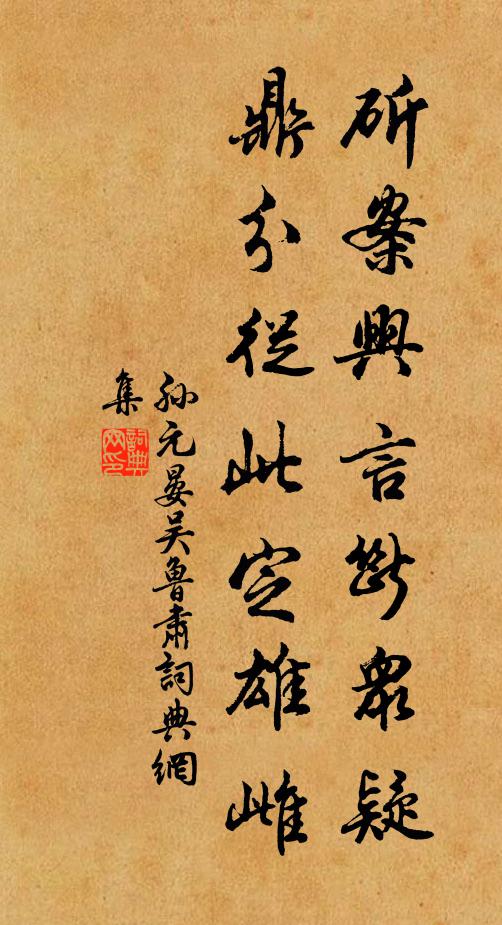 斫案興言斷衆疑
鼎分從此定雄雌
孫元晏吳魯肅詞典網
集
詞典
網印